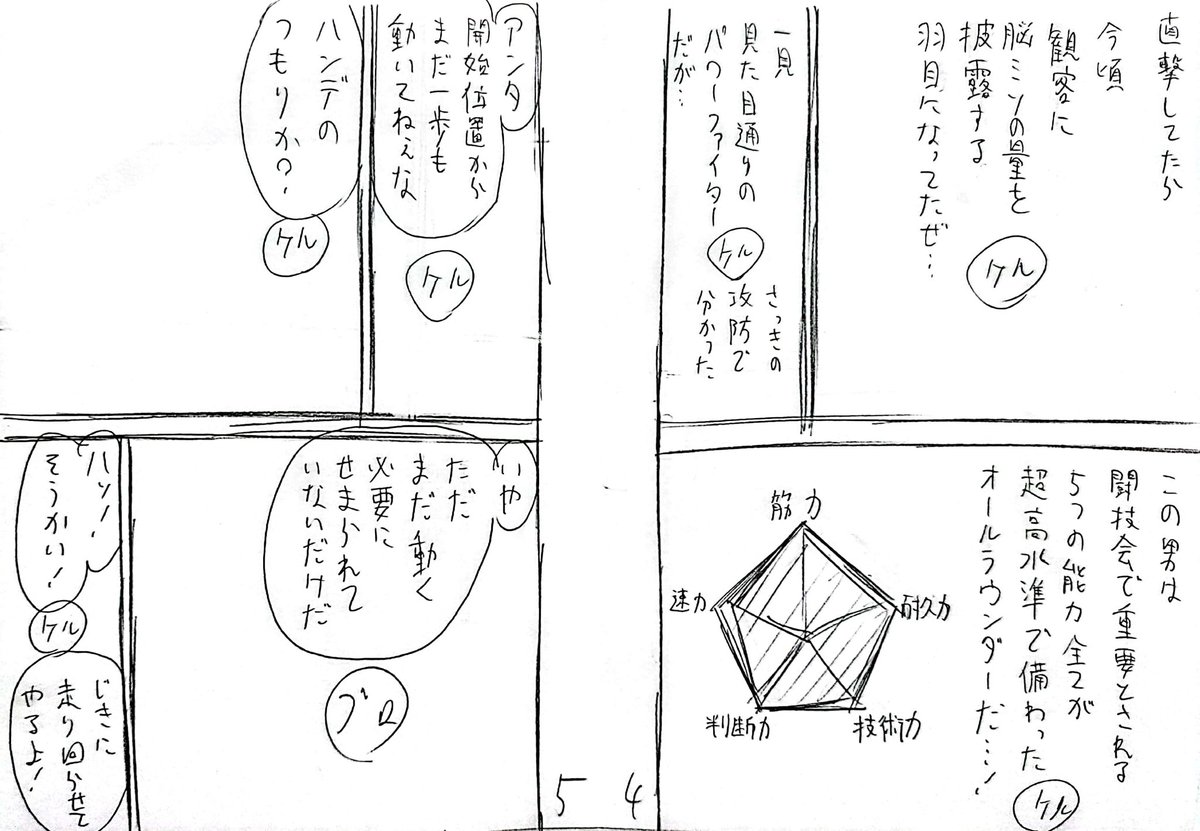 直撃してたら
今頃
観客に
脳ミソの量を
披露する
羽目になってたぜ…
ケル
一見
見た目通りの
パワーファイター
だが…
ケル
さっきの
攻防で
分かった
この男は
闘技会で重要とされる
5つの能力全てが
超高水準で備わった
オールラウンダーだ…!
ケル
筋力
耐久力
技術力
判断力
速力
4
アンタ
開始位置から
まだ一歩も
動いてねぇな
ケル
ハンデの
つもりか?
ケル
いや
ただ
まだ動く
必要に
せまられて
いないだけだ
ブロ
ハッ!
そうかい!
ケル
じきに
走り回らせて
やるよ!
5